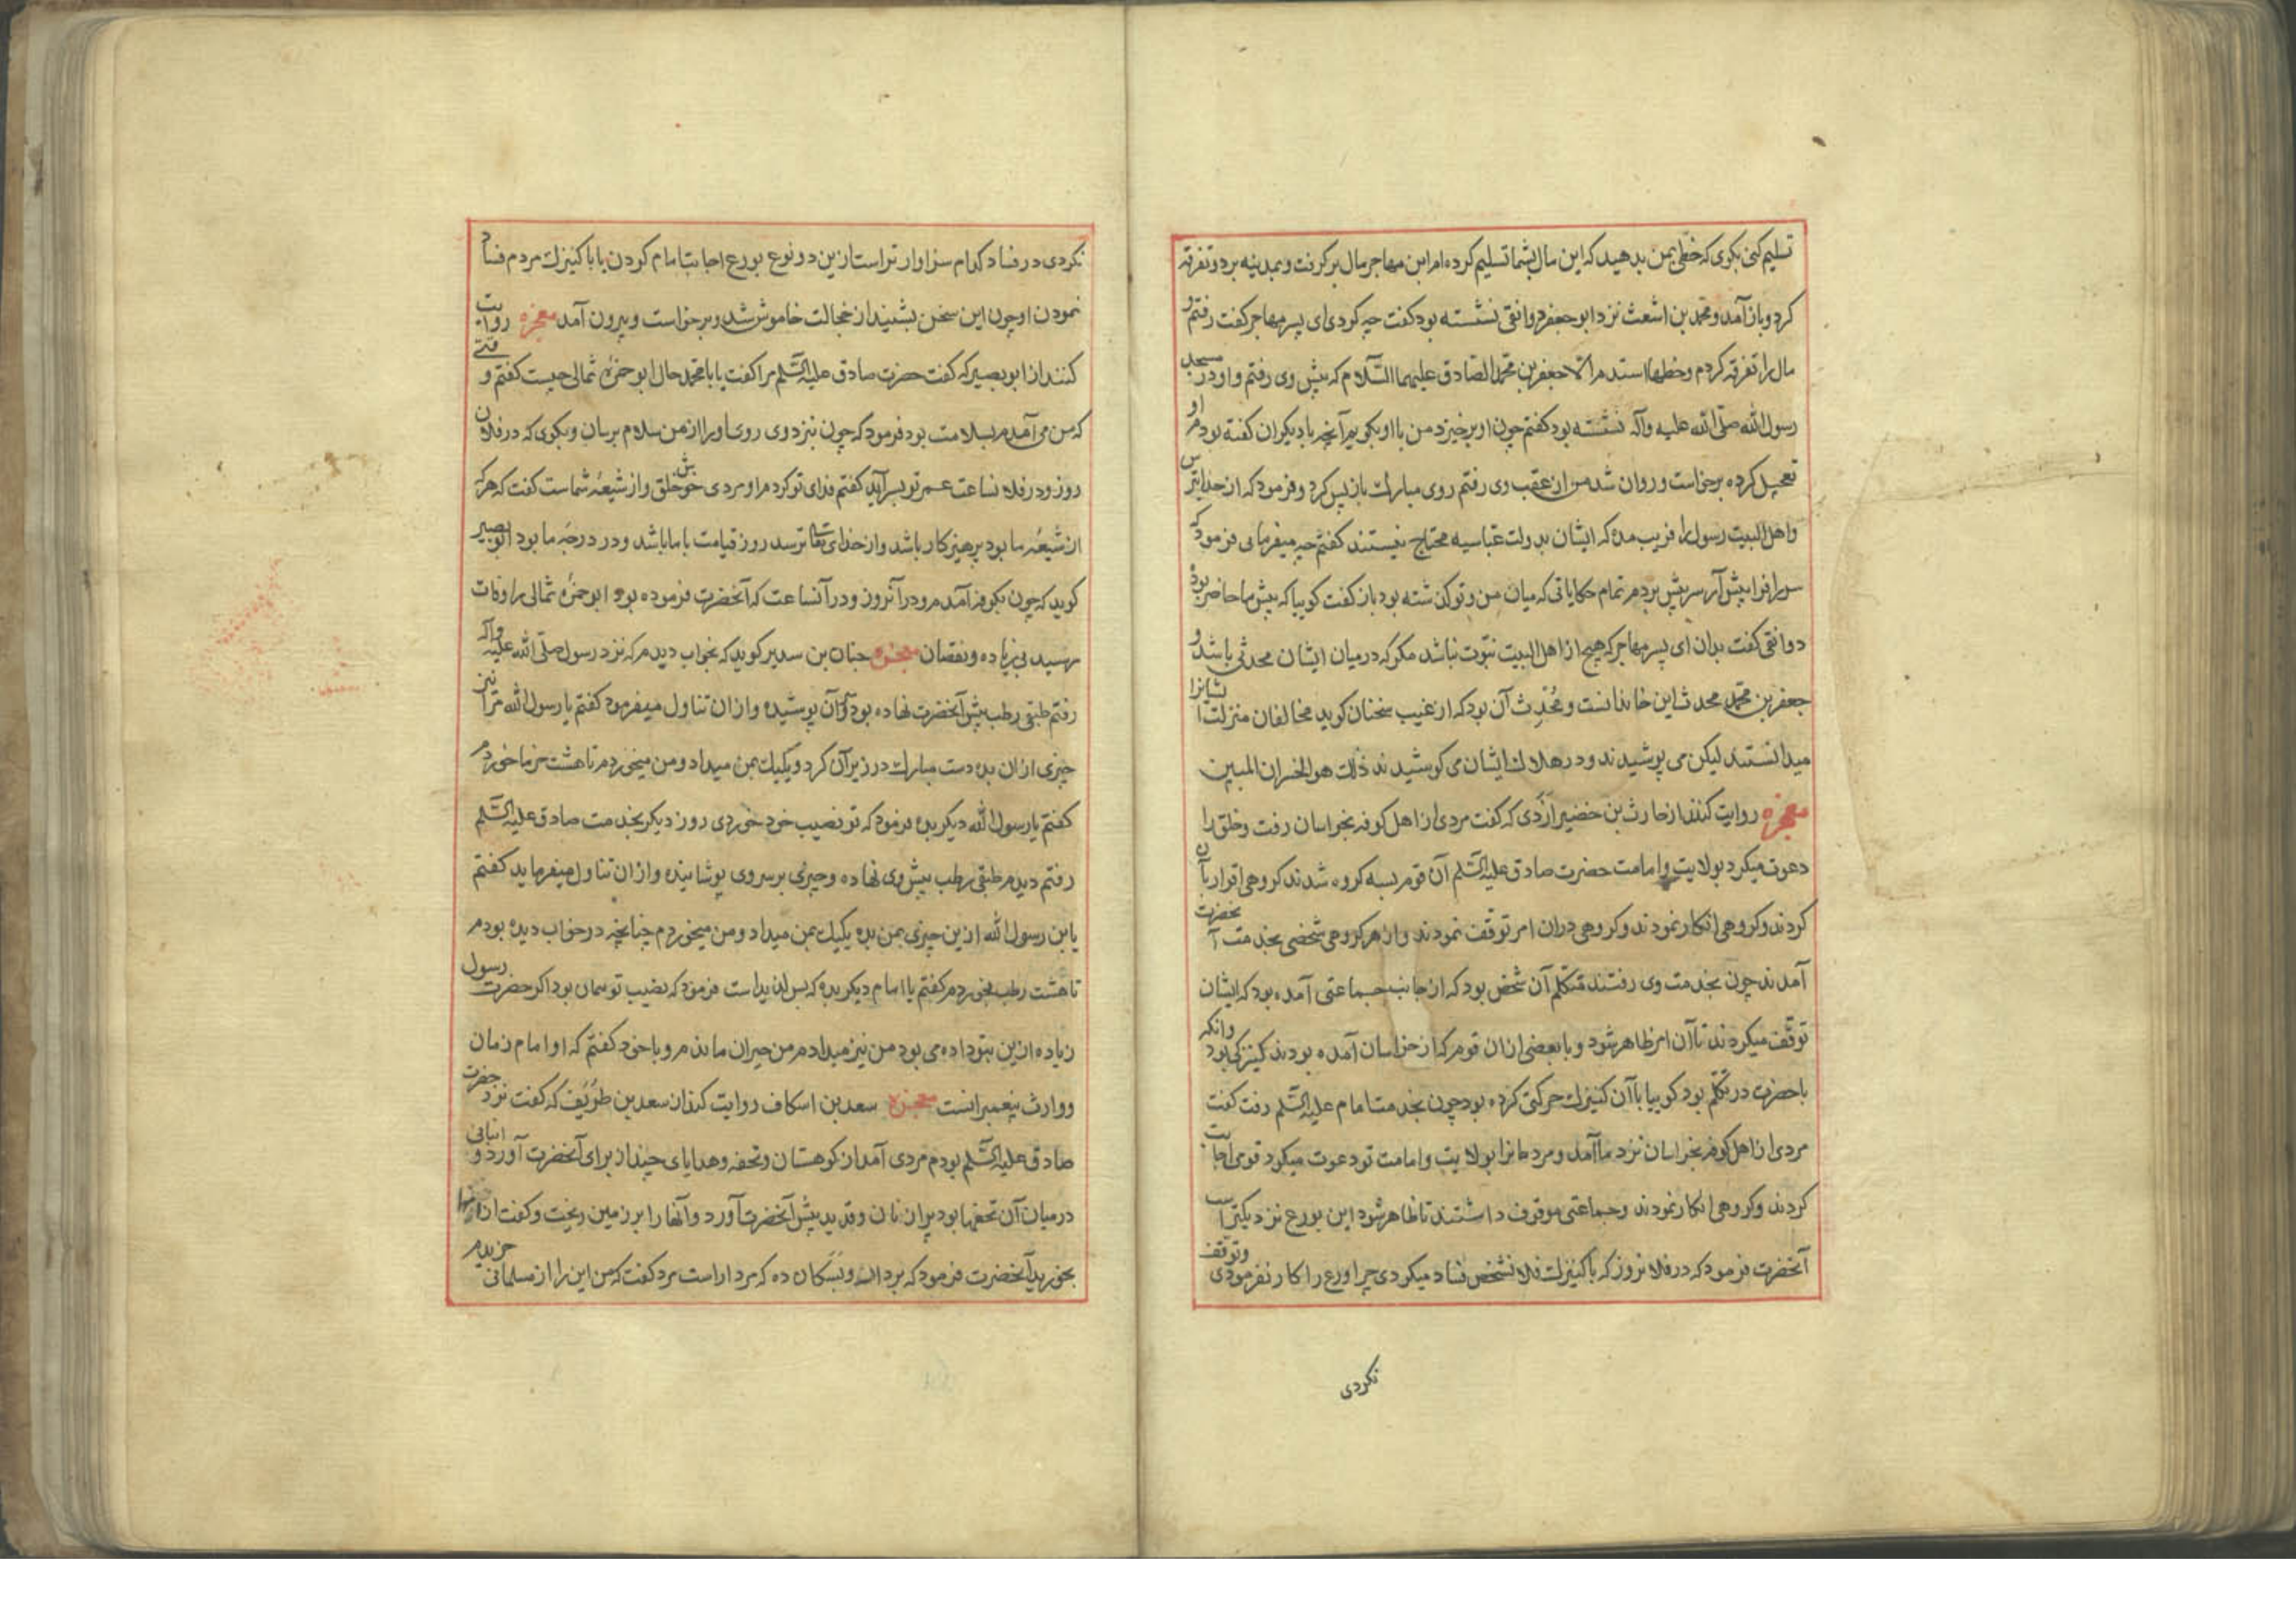 تسلیم کنی بکوی که خطی بمن بدهید که این مال بشما تسلیم کرده‌ام ابن مهاجر مال برکرفت و بمدینه برد و تفرقه
کرد و باز آمد و محمد بن اشعث نزد ابو جعفر دوانقی نشسته بود کفت چه کردی ای پسر مهاجر کفت رفتم و
مال را تفرقه کردم و خطها استدم الا جعفر بن محمد الصادق علیهما السّلام که پیش وی رفتم و او در مسجد
رسول الله صلّی الله علیه وآله نشسته بود کفتم چون او برخیزد من با او بکویم آنچه با دیکران کفته بودم او
تعجیل کرده برخاست و روان شد من از عقب وی رفتم روی مبارک باز پس کرد و فرمود که از خدا بترس
و اهل البیت رسول را فریب مده که ایشان بدولت عباسیه محتاج نیستند کفتم چه میفرمایی فرمود که
سر را فرا پیش آر سر پیش بردم تمام حکایاتی که میان من و تو کذشته بود باز کفت کوییا که پیش ما حاضر بوده
دوانقی کفت بدان ای پسر مهاجر که هیچ از اهل البیت نبوت نباشد مکر که درمیان ایشان محدثی باشد و
جعفر بن محمد محدث این خاندانست و محدِث آن بود که از غیب سخنان کوید مخالفان منزلت ایشانرا
میدانستند لیکن می پوشیدند و در هلاک ایشان می کوشیدند ذلک هو الخسران المبین
معجزه روایت کنند از حارث بن خضیر ازدی که کفت مردی از اهل کوفه بخراسان رفت و خلق را
دعوت میکرد بولایت و امامت حضرت صادق علیه السّلم آن قوم بسه کروه شدند کروهی اقرار بآن
کردند و کروهی انکار نمودند و کروهی دران امر توقف نمودند و از هر کروهی شخصی بخدمت آنحضرت
آمدند چون بخدمت وی رفتند متکلم آن شخص بود که از جانب جماعتی آمده بود که ایشان
توقّف میکردند تا آن امر ظاهر شود و با بعضی ازان قوم که از خراسان آمده بودند کنیزکی بود وانکه
با حضرت در تکلّم بود کوییا با آن کنیزک حرکتی کرده بود چون بخدمت امام علیه السّلم رفت کفت
مردی از اهل کوفه بخراسان نزد ما آمد و مردمانرا بولایت و امامت تو دعوت میکرد قومی اجابت
کردند و کروهی انکار نمودند و جماعتی موقوف داشتند تا ظاهر شود این بورع نزدیکتراست
آنحضرت فرمود که در فلان روز که با کنیزک فلان شخص فساد میکردی چرا ورع را کار نفرمودی و توقف
نکردی
نکردی در فساد کدام سزاوارتر است ازین دو نوع بورع اجابت امام کردن یا با کنیزک مردم فساد
نمودن او چون این سخن بشنید از خجالت خاموش شد و برخاست و بیرون آمد معجزه روایت
کنند از ابو بصیر که کفت حضرت صادق علیه السّلم مرا کفت یا با محمد حال ابو حمزهٔ ثمالی چیست کفتم وقتی
که من می آمدم بسلامت بود فرمود که چون نزد وی روی او را از من سلام برسان و بکوی که در فلان
روز و در فلان ساعت عمر تو بسر آید کفتم فدای تو کردم او مردی خوش خلق و از شیعهٔ شماست کفت که هرکه
از شیعهٔ ما بود پرهیزکار باشد و از خدای تعالی ترسد روز قیامت با ما باشد و در درجهٔ ما بود ابو بصیر
کوید که چون بکوفه آمدم و در آنروز و در آنساعت که آنحضرت فرموده بود ابو حمزهٔ ثمالی را وفات
رسید بی زیاده و نقصان معجزه حنان بن سدیر کوید که بخواب دیدم که نزد رسول صلّی الله علیه وآله
رفتم طبقی رطب پیش آنحضرت نهاده بود و آن پوشیده و ازان تناول میفرمود کفتم یا رسول الله مرا نیز
چیزی ازان بده دست مبارک در زیر آن کرد و یکیک بمن میداد و من میخوردم تا هشت خرما خوردم
کفتم یا رسول الله دیکر بده فرمود که تو نصیب خود خوردی روز دیکر بخدمت صادق علیه السّلم
رفتم دیدم طبقی رطب پیش وی نهاده و چیزی بر سر وی پوشانیده و ازان تناول میفرماید کفتم
یا بن رسول الله ازین چیزی بمن بده یکیک بمن میداد و من میخوردم چنانچه در خواب دیده بودم
تا هشت رطب بخوردم کفتم یا امام دیکر بده که بس لذیذ است فرمود که نصیب تو همان بود اکر حضرت رسول
زیاده ازین بتو داده می بود من نیز میدادم من حیران ماندم و با خود کفتم که او امام زمان
و وارث پیغمبرانست معجزه سعد بن اسکاف روایت کند از سعد بن طریف که کفت نزد حضرت
صادق علیه السّلم بودم مردی آمد از کوهستان و تحفه و هدایای چند از برای آنحضرت آورد و انبانی
درمیان آن تحفها بود پر از نان و قدید پیش آنحضرت آورد و آنها را بر زمین ریخت و کفت از اینها
بخورید آنحضرت فرمود که بردار و بسکان ده که مردار است مرد کفت که من این را از مسلمانی خریدم